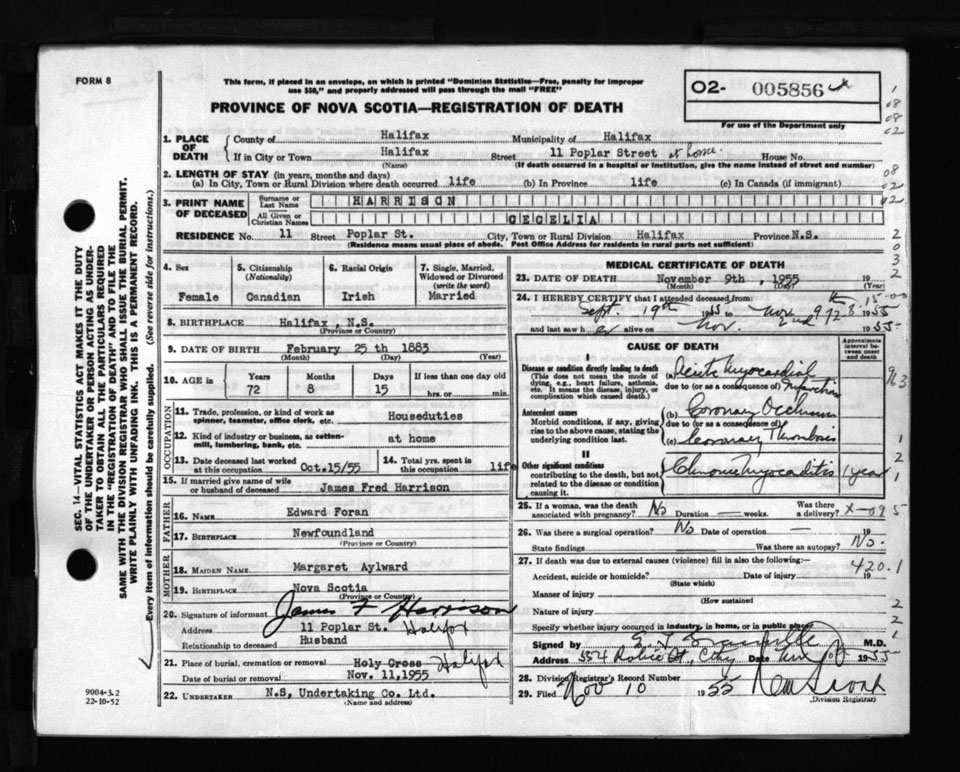 FORM 8
This form, if placed in an envelope, on which is printed "Dominion Statistics—Free, penalty for improper
use $50," and properly addressed will pass through the mail "FREE"
PROVINCE OF NOVA SCOTIA—REGISTRATION OF DEATH
O2- 005856
For use of the Department only
SEC. 14—VITAL STATISTICS ACT MAKES IT THE DUTY
OF THE UNDERTAKER OR PERSON ACTING AS UNDER-
TAKER TO OBTAIN ALL THE PARTICULARS REQUIRED
IN THE "REGISTRATION OF DEATH" AND TO FILE THE
SAME WITH THE DIVISION REGISTRAR WHO SHALL ISSUE THE BURIAL PERMIT.
WRITE PLAINLY WITH UNFADING INK. THIS IS A PERMANENT RECORD.
Every item of information should be carefully supplied. (See reverse side for instructions.)
1. PLACE OF DEATH
County of Halifax Municipality of Halifax
If in City or Town Halifax Street 11 Poplar Street at home. House No.
(Name) (If death occurred in a hospital or institution, give the name instead of street and number)
2. LENGTH OF STAY (in years, months and days)
(a) In City, Town or Rural Division where death occurred life (b) In Province life (c) In Canada (if immigrant)
3. PRINT NAME OF DECEASED
Surname or Last Name HARRISON
All Given or Christian Names CECELIA
RESIDENCE No. 11 Street Poplar St. City, Town or Rural Division Halifax Province N.S.
(Residence means usual place of abode. Post Office Address for residents in rural parts not sufficient)
4. Sex
Female
5. Citizenship (Nationality)
Canadian
6. Racial Origin
Irish
7. Single, Married, Widowed or Divorced (write the word)
Married
8. BIRTHPLACE Halifax, N.S.
(Province or Country)
9. DATE OF BIRTH February 25 th 1883
(Month) (Day) (Year)
10. AGE IN Years Months Days If less than one day old
72 8 15 hrs. or min.
OCCUPATION
11. Trade, profession, or kind of work as spinner, teamster, office clerk, etc. Houseduties
12. Kind of industry or business, as cotton-mill, lumbering, bank, etc. at home
13. Date deceased last worked at this occupation Oct.15/55
14. Total yrs. spent in this occupation life
15. If married give name of wife or husband of deceased James Fred Harrison
FATHER
16. NAME Edward Foran
17. BIRTHPLACE Newfoundland
(Province or Country)
MOTHER
18. MAIDEN NAME Margaret Aylward
19. BIRTHPLACE Nova Scotia
(Province or Country)
20. Signature of informant James F Harrison
Address 11 Poplar St. Halifax
Relationship to deceased Husband
21. Place of burial, cremation or removal Holy Cross Halifax
Date of burial or removal Nov. 11,1955
22. UNDERTAKER N.S, Undertaking Co. Ltd.
(Name and address)
9004-3.2
22-10-52
MEDICAL CERTIFICATE OF DEATH
23. DATE OF DEATH November 9th, 1955 19
(Month) (Day) (Year)
24. I HEREBY CERTIFY that I attended deceased from:
Sept. 19th 1955 to Nov. 1955
and last saw her alive on Nov. 2nd 1955
CAUSE OF DEATH
Approximate interval between onset and death
I
Disease or condition directly leading to death
(This does not mean the mode of dying, e.g., heart failure, asthenia, etc. It means the disease, injury, or complication which caused death.)
(a) Acute Myocardial Infarction
due to (or as a consequence of)
Antecedent causes
Morbid conditions, if any, giving rise to the above cause, stating the underlying condition last.
(b) Coronary Occlusion
due to (or as a consequence of)
(c) Coronary Thrombosis
II
Other significant conditions
contributing to the death, but not related to the disease or condition causing it.
Chronic Myocarditis 1 year
25. If a woman, was the death associated with pregnancy? No Duration weeks. Was there a delivery?
26. Was there a surgical operation? No Date of operation 19
State findings Was there an autopsy? No.
27. If death was due to external causes (violence) fill in also the following:— 420.1
Accident, suicide or homicide? Date of injury 19
(State which)
Manner of injury
(How sustained
Nature of injury
Specify whether injury occurred in industry, in home, or in public place
Signed by M.D.
Address City Date Nov 1955
28. Division Registrar's Record Number
29. Filed Nov 10 1955
(Division Registrar)